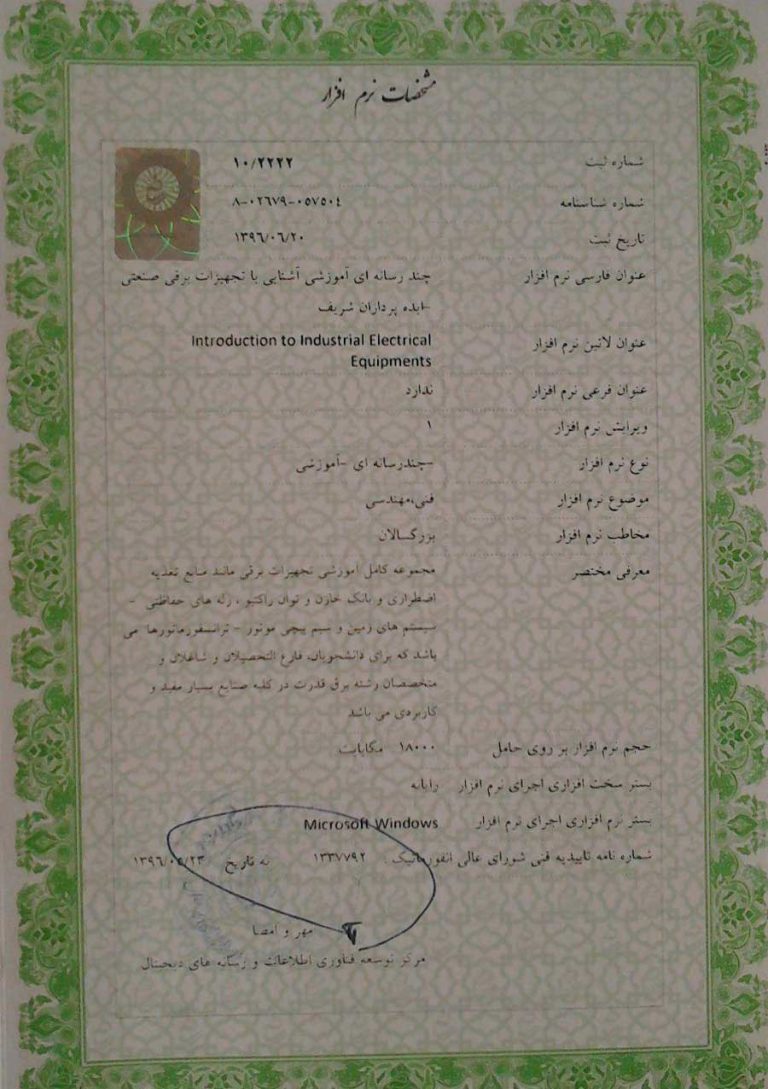 مشخصات نرم افزار
شماره ثبت ۱۰/۲۲۲۲
شماره شناسنامه ۸-۰۲۶۷۹-۰۵۷۵۰٤
تاریخ ثبت ۱۳۹۶/۰۶/۲۰
عنوان فارسی نرم افزار چند رسانه ای آموزشی آشنایی با تجهیزات برقی صنعتی
-ایده پردازان شریف
عنوان لاتین نرم افزار Introduction to Industrial Electrical
Equipments
عنوان فرعی نرم افزار ندارد
ویرایش نرم افزار ۱
نوع نرم افزار -چندرسانه ای -آموزشی
موضوع نرم افزار فنی،مهندسی
مخاطب نرم افزار بزرگسالان
معرفی مختصر مجموعه کامل آموزشی تجهیزات برقی مانند منابع تغذیه
اضطراری و بانک خازن و توان راکتیو ، رله های حفاظتی -
سیستم های زمین و سیم پیچی موتور - ترانسفورماتورها می
باشد که برای دانشجویان، فارغ التحصیلان و شاغلان و
متخصصان رشته برق قدرت در کلیه صنایع بسیار مفید و
کاربردی می باشد
حجم نرم افزار بر روی حامل ۱۸۰۰۰ مگابایت
بستر سخت افزاری اجرای نرم افزار رایانه
بستر نرم افزاری اجرای نرم افزار Microsoft Windows
شماره نامه تاییدیه فنی شورای عالی انفورماتیک . ۱۳۳۷۷۹۲ به تاریخ
مهر و امضا
مرکز توسعه فناوری اطلاعات و رسانه های دیجیتال